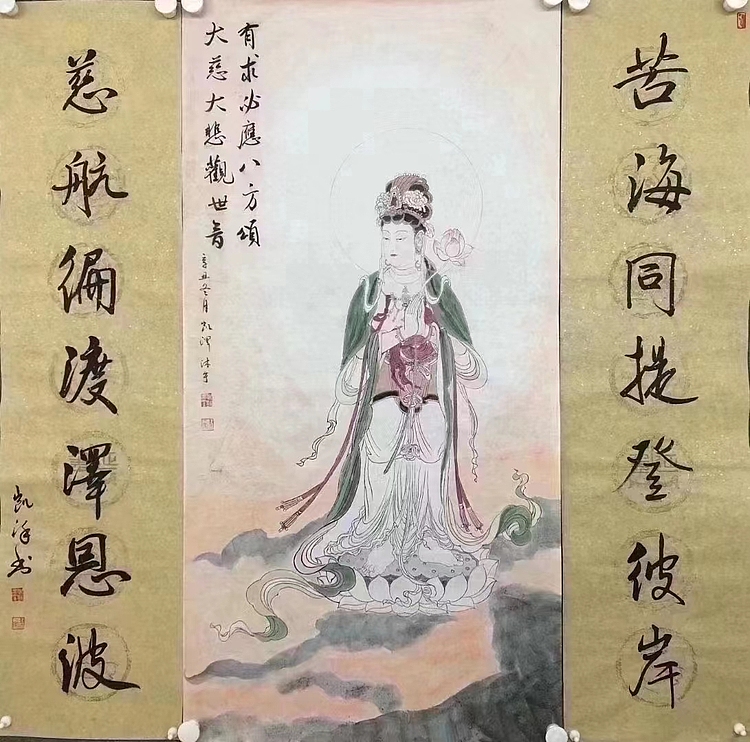 苦海同提登彼岸
有求必應八方頌
大慈大悲觀世音
辛丑冬月凱澤沐手
慈航徧渡澤恩波
凱澤书